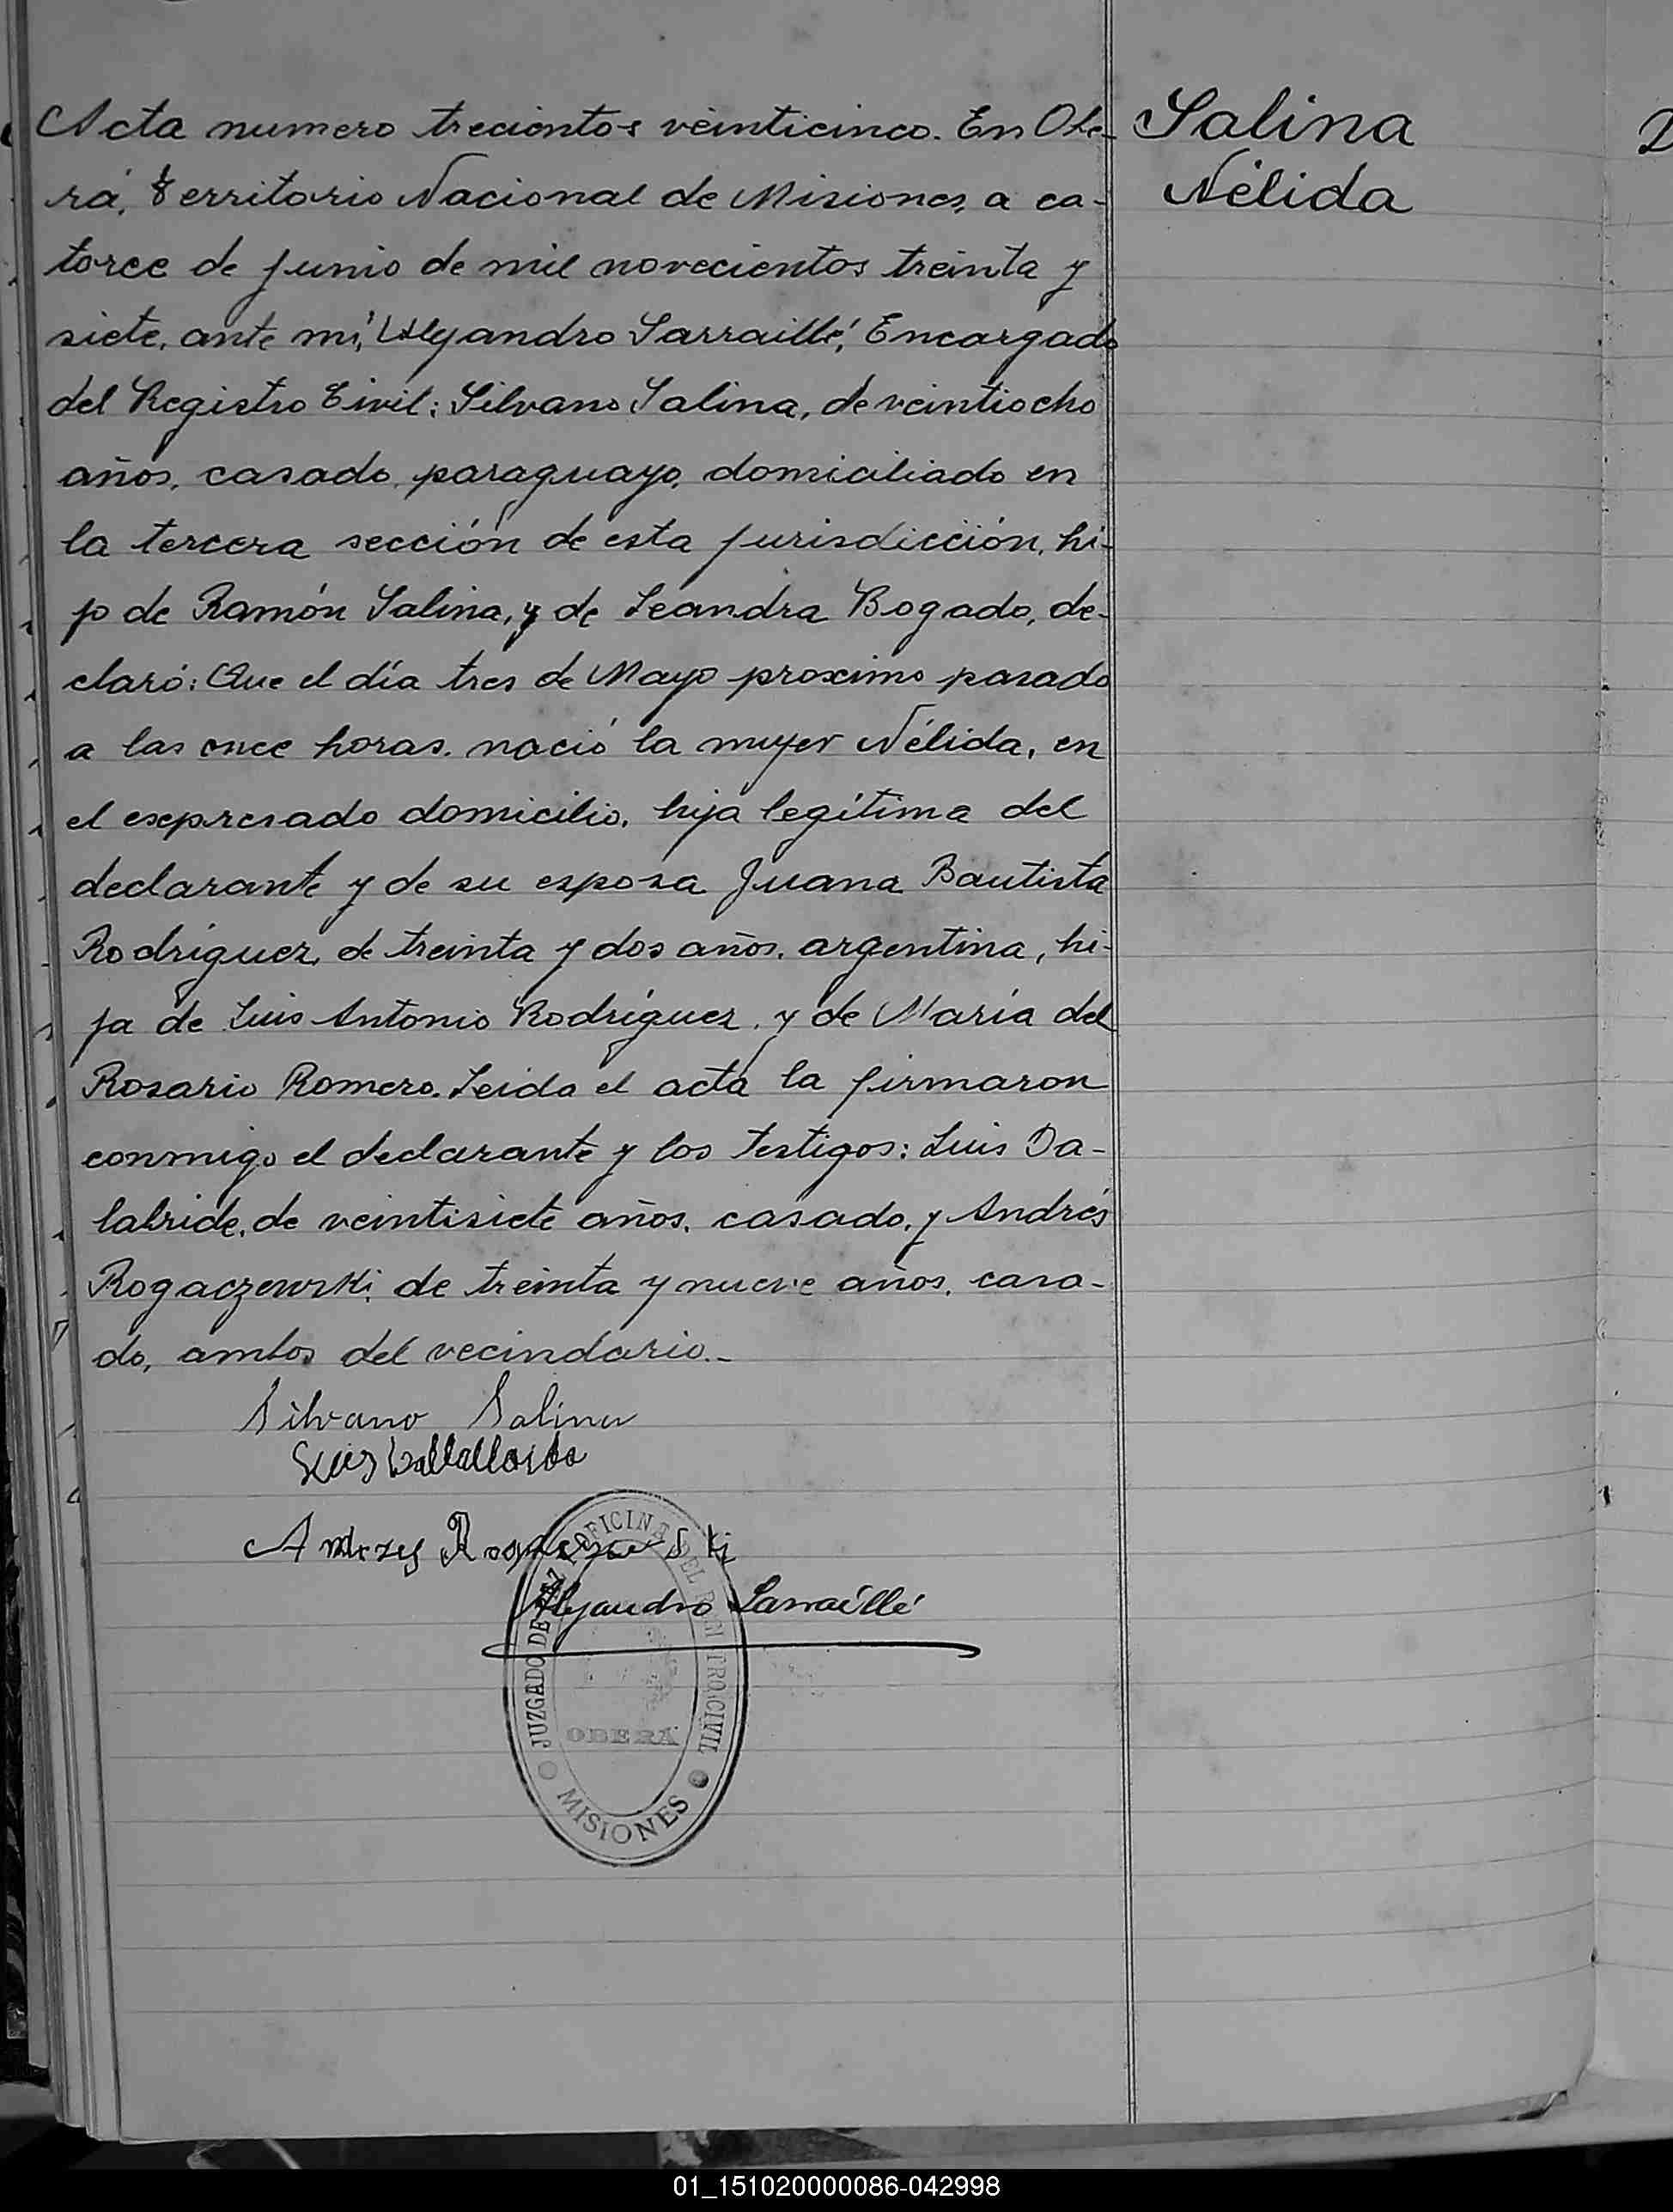 Acta numero trecientos veinticinco. En Obe-
rá, territorio Nacional de Misiones, a ca-
torce de junio de mil novecientos treinta y
siete, ante mí, Alejandro Sarraillé, Encargado
del Registro Civil: Silvano Salina, de veintiocho
años, casado, paraguayo, domiciliado en
la tercera sección de esta jurisdicción, hi-
jo de Ramón Salina, y de Leandra Bogado, de-
claró: Que el día tres de Mayo proximo pasado
a las once horas, nació la mujer Nélida, en
el expresado domicilio, hija legítima del
declarante y de su esposa Juana Bautista
Rodríguez, de treinta y dos años, argentina, hi-
ja de Luis Antonio Rodríguez, y de María del
Rosario Romero. Leida el acta la firmaron
conmigo el declarante y los testigos: Luis Da-
labride, de veintisiete años, casado, y Andrés
Rogaczewski, de treinta y nueve años, casa-
do, ambos del vecindario.-
Salina
Nélida
Silvano Salina
Luis
Alejandro Sarraillé
JUZGADO DE PAZ Y OFICINA DEL REGISTRO CIVIL
OBERÁ
MISIONES
01_151020000086-042998